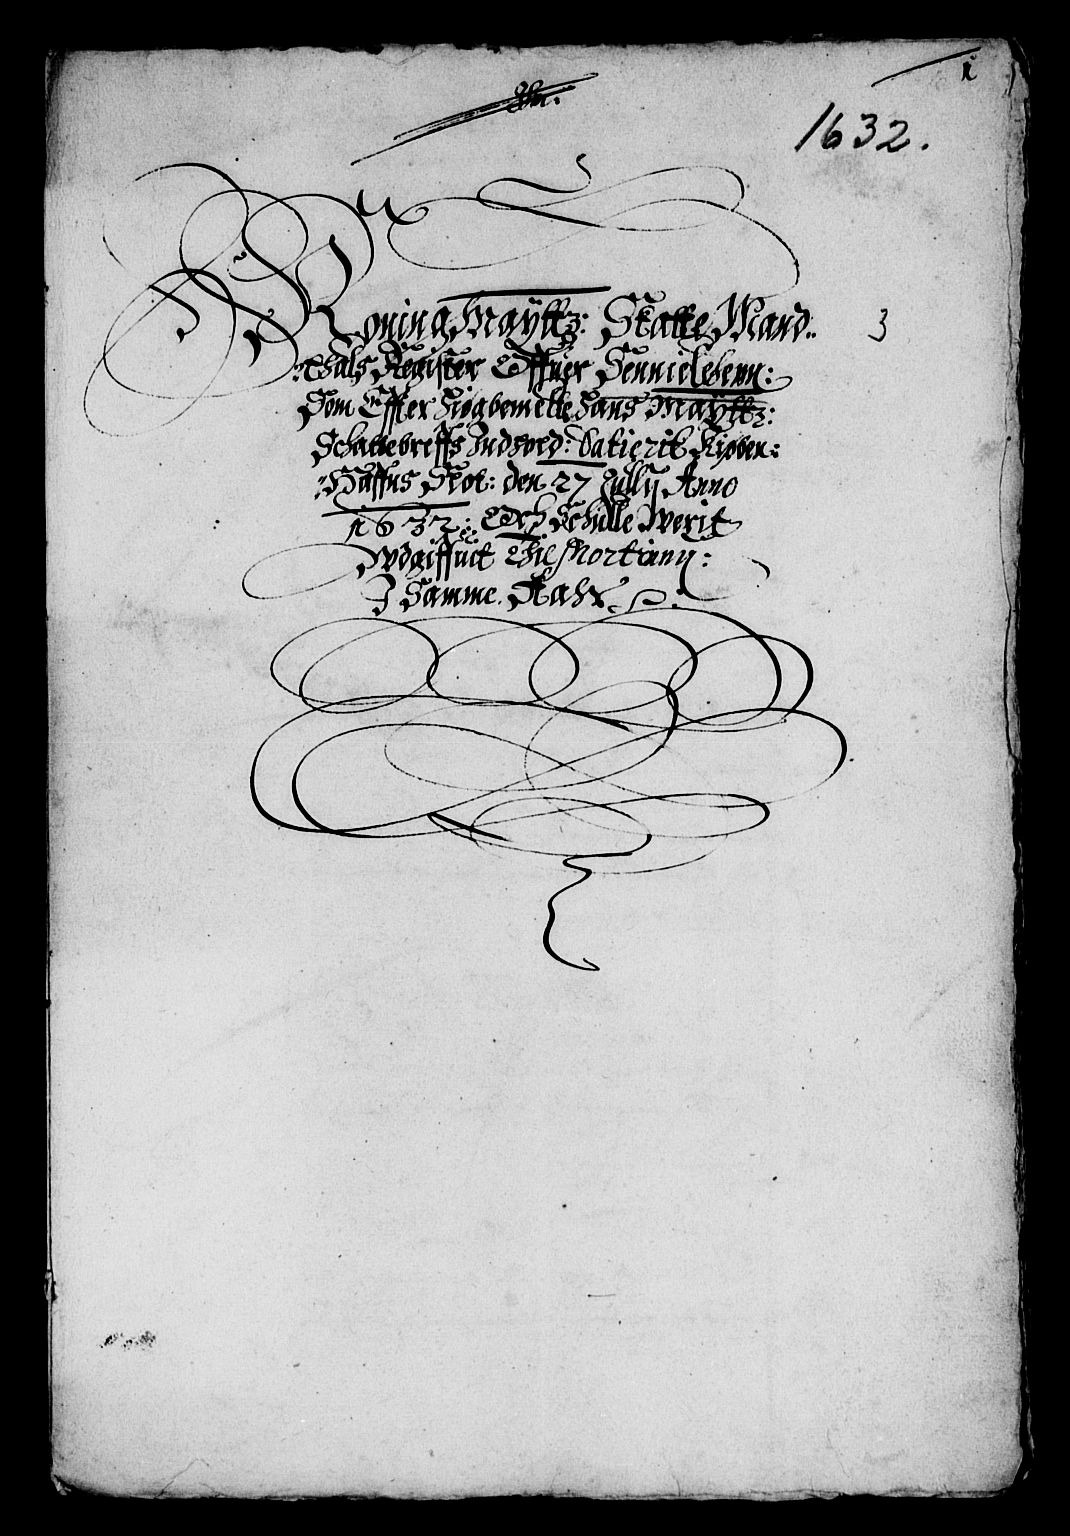 1
1632.
Koning Maÿttz: Skatte Mand.. 3
:thals Register Offuer Sennielehenn:
Som Effter Høgbemelte Hans Maÿttz:
Schattebreffs Indhold: Datierit Kiøben:
:Haffns Slot: den 27 Jullij Anno
1632: Och Schulle Werit
Wdgiffuit Thil Mortinnj:
J Samme Aahr